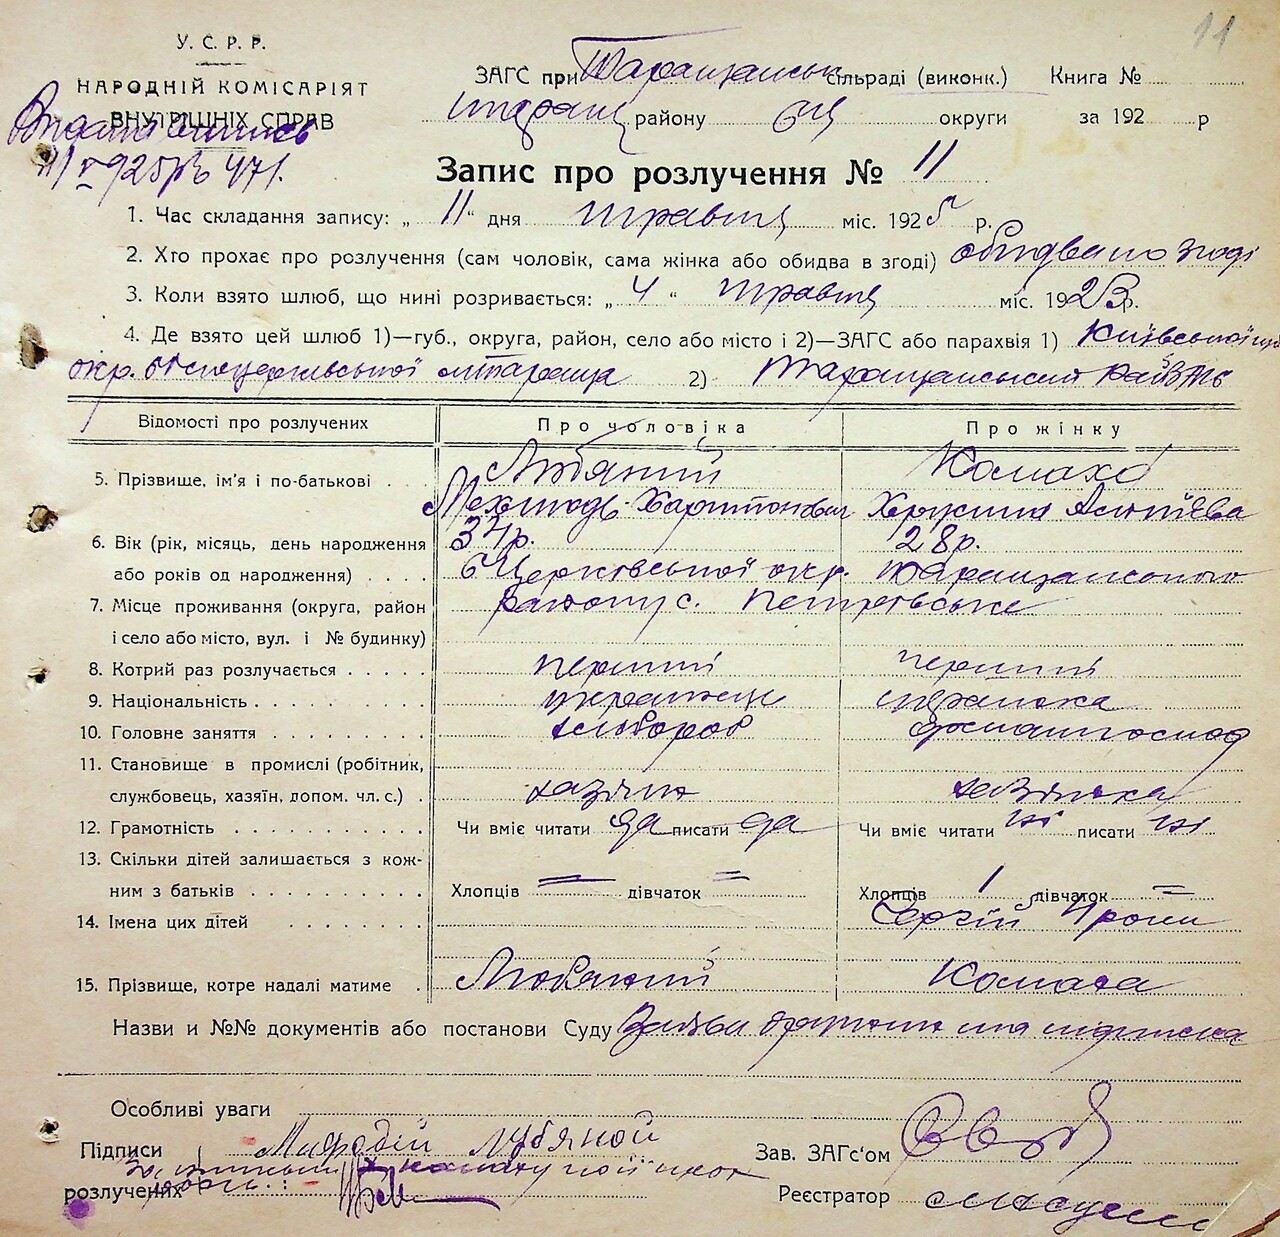 11
У. С. Р. Р.
НАРОДНІЙ КОМІСАРІЯТ
ВНУТРІШНІХ СПРАВ
ЗАГС при Таращанськ сільраді (виконк.) Книга №
району бц округи за 192 р
Запис про розлучення № 11
1. Час складання запису: „ 11 “ дня травня міс. 1925 р.
2. Хто прохає про розлучення (сам чоловік, сама жінка або обидва в згоді) обидва по згоді
3. Коли взято шлюб, що нині розривається: „ 4 “ травня міс. 1923 р.
4. Де взято цей шлюб 1)—губ., округа, район, село або місто і 2)—ЗАГС або парахвія 1) Київської
окр. Білоцерківської м Тараща 2) Таращанський
Відомості про розлучених Про чоловіка Про жінку
5. Прізвище, ім'я і по-батькові Любяний Комаха
Харитонович
6. Вік (рік, місяць, день народження 34р. 28р.
або років од народження) бЦерківської окр. Таращанського
7. Місце проживання (округа, район району с. Петрівське
і село або місто, вул. і № будинку)
8. Котрий раз розлучається перший перший
9. Національність українець українка
10. Головне заняття хлібороб
11. Становище в промислі (робітник,
службовець, хазяїн, допом. чл. с.) хазяїн хазяйка
12. Грамотність Чи вміє читати да писати да Чи вміє читати ні писати ні
13. Скільки дітей залишається з кож-
ним з батьків Хлопців = дівчаток = Хлопців 1 дівчаток =
14. Імена цих дітей Сергій
15. Прізвище, котре надалі матиме Любяний Комаха
Назви и №№ документів або постанови Суду Заява та підписка
Особливі уваги
Підписи Любяной Зав. ЗАГс'ом
розлучених Реєстратор